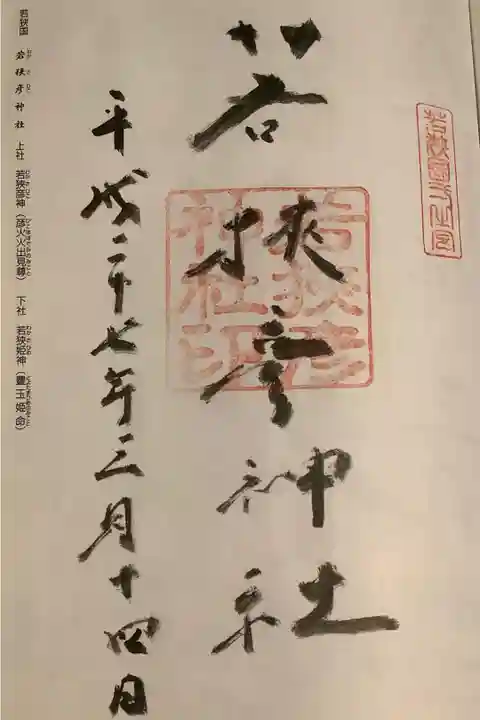 若狭国一宮
若狭彦神社
若狭彦神社印
平成二十七年三月十四日
若狭国 若狭彦神社 上社 若狭彦神(彦火火出見尊) 下社 若狭姫神(豊玉姫命)